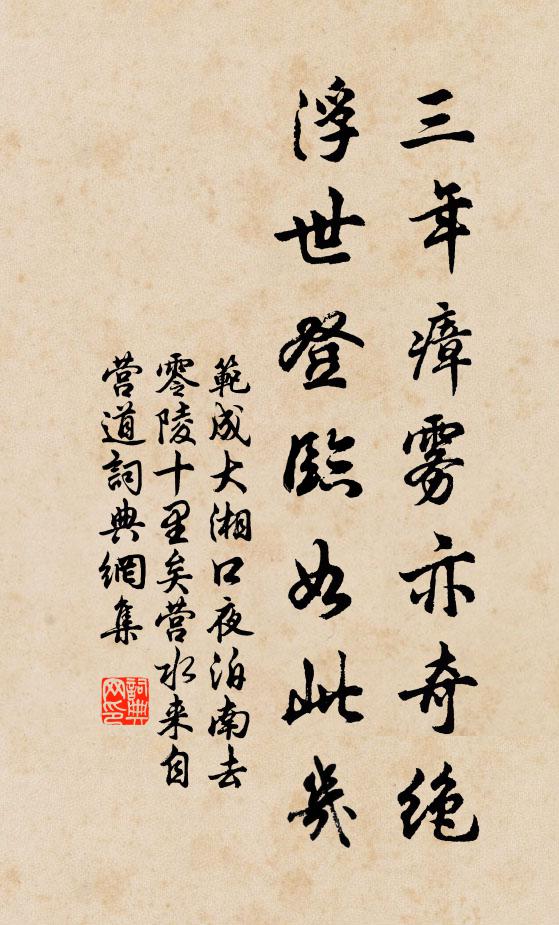 三年瘴雾亦奇绝
浮世登臨如此幾
範成大湘口夜泊南去
零陵十里矣营水来自
营道詞典網集
詞典网印